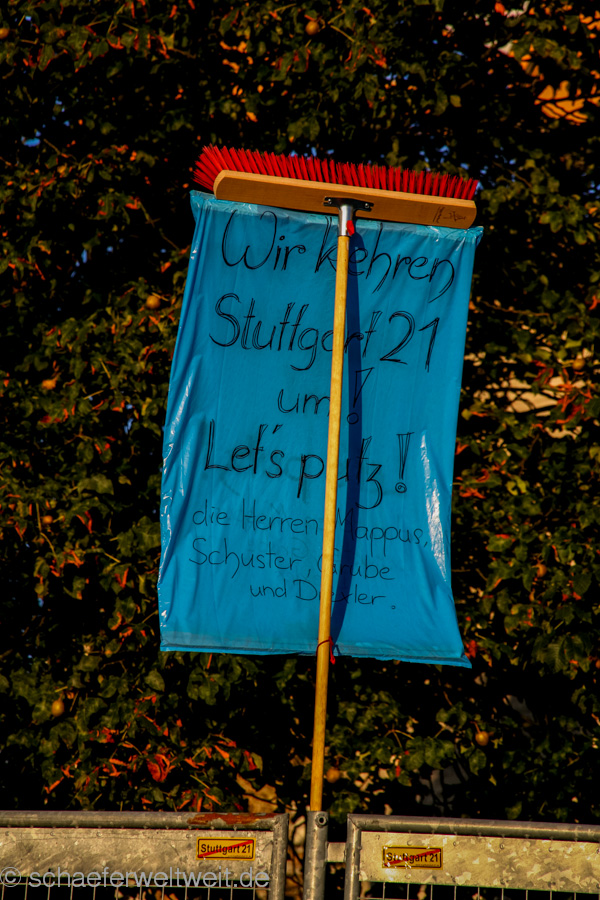 Wir kehren
Stuttgart 21
um!
Let's putz!
die Herren Mappus,
Schuster, Grube
und Drexler.
Stuttgart 21
Stuttgart 21
© schaeferweltweit.de